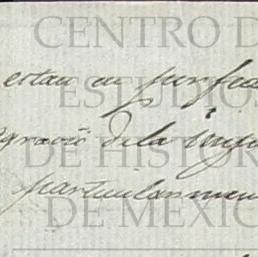 CENTRO D
estan en perfec
ESTUDIOS
de la
DE HISTOR
particularmen
DE MEXIC